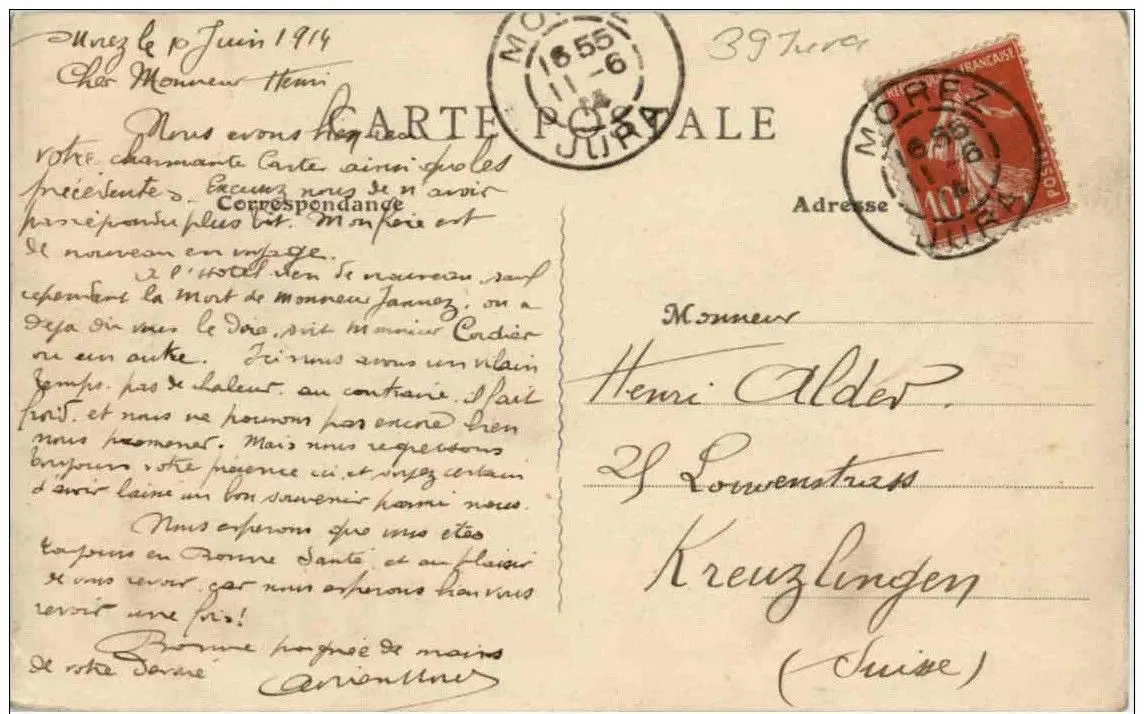 Morez le 10 Juin 1914
Cher Monsieur Henri
Nous avons bien reçu
votre charmante Carte ainsi que les
précédentes. Excusez nous de n'avoir
pas répondu plus vit. Mon père est
de nouveau en voyage.
A l'Hotel rien de nouveau, sauf
cependant la Mort de Monsieur Jannez, on a
deja du vous le dire, soit Monsieur Cordier
ou un autre. Ici nous avons un vilain
temps, pas de chaleur, au contraire, il fait
froid, et nous ne pouvons pas encore bien
nous promener. Mais nous regrettons
toujours votre présence ici, et soyez certain
d'avoir laissé un bon souvenir parmi nous.
Nous esperons que vous etes
toujours en Bonne Santé, et au plaisir
de vous revoir, car nous esperons bien vous
revoir une fois!
Bonne poignée de mains
de votre Devoué
CARTE POSTALE
Correspondance
Adresse
39 Jura
MOREZ
16 55
11 - 6
14
JURA
REPUBLIQUE FRANÇAISE
POSTES
10
MOREZ
16 55
11 - 6
14
JURA
Monsieur
Henri Alder.
25 Louwenstrass
Kreuzlingen
(Suisse)